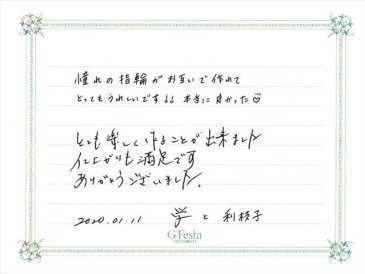 憧れの指輪がお互いで作れて
とってもうれしいです!! 本当に良かった♡
とても楽しく作ることが出来ました
仕上がりも満足です
ありがとうございました。
2020.01.11 学と利枝子
G.Festa